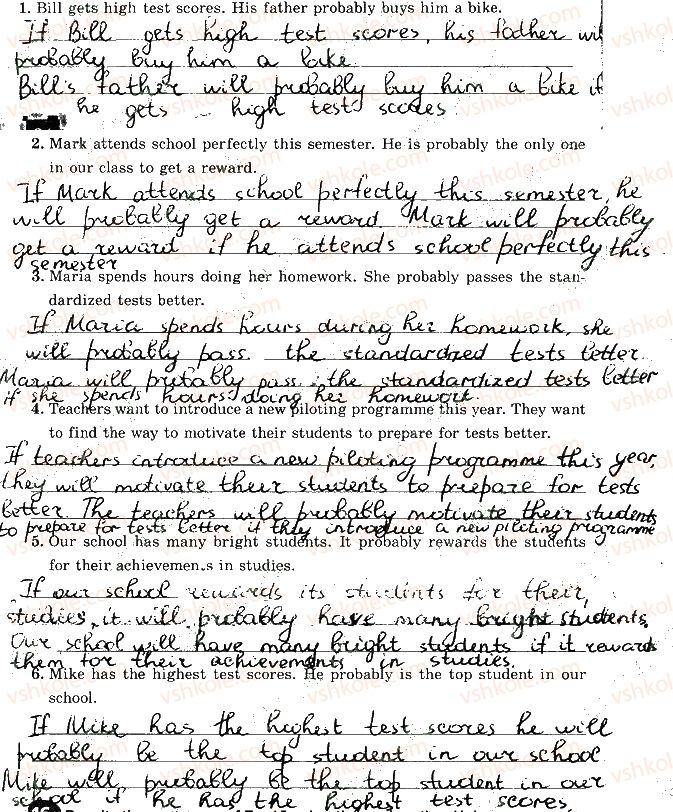 1. Bill gets high test scores. His father probably buys him a bike.
If Bill gets high test scores, his father will
probably buy him a bike
Bill's father will probably buy him a bike if
he gets high test scores
2. Mark attends school perfectly this semester. He is probably the only one
in our class to get a reward.
If Mark attends school perfectly this semester, he
will probably get a reward. Mark will probably
get a reward if he attends school perfectly this
semester
3. Maria spends hours doing her homework. She probably passes the stan-
dardized tests better.
If Maria spends hours during her homework, she
will probably pass the standardized tests better.
Maria will probably pass the standardized tests better
if she spends hours doing her homework.
4. Teachers want to introduce a new piloting programme this year. They want
to find the way to motivate their students to prepare for tests better.
If teachers introduce a new piloting programme this year,
they will motivate their students to prepare for tests
better. The teachers will probably motivate their students
to prepare for tests better if they introduce a new piloting programme
5. Our school has many bright students. It probably rewards the students
for their achievemen.s in studies.
If our school rewards its students for their
studies, it will probably have many bright students.
Our school will have many bright students if it rewards
them for their achievements in studies.
6. Mike has the highest test scores. He probably is the top student in our
school.
If Mike has the highest test scores he will
probably be the top student in our school
Mike will probably be the top student in our
school if he has the highest test scores.
vshkole.com